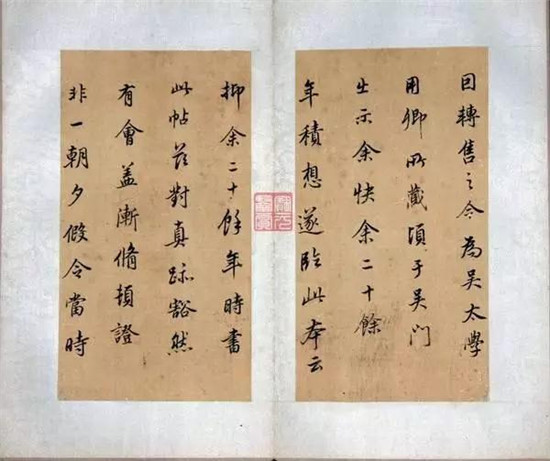 因轉售之今為吳太學
用卿所藏頃于吳門
出示余快余二十餘
年積想遂臨此本云
抑余二十餘年時書
此帖茲對真跡豁然
有會蓋漸脩頓證
非一朝夕假令當時